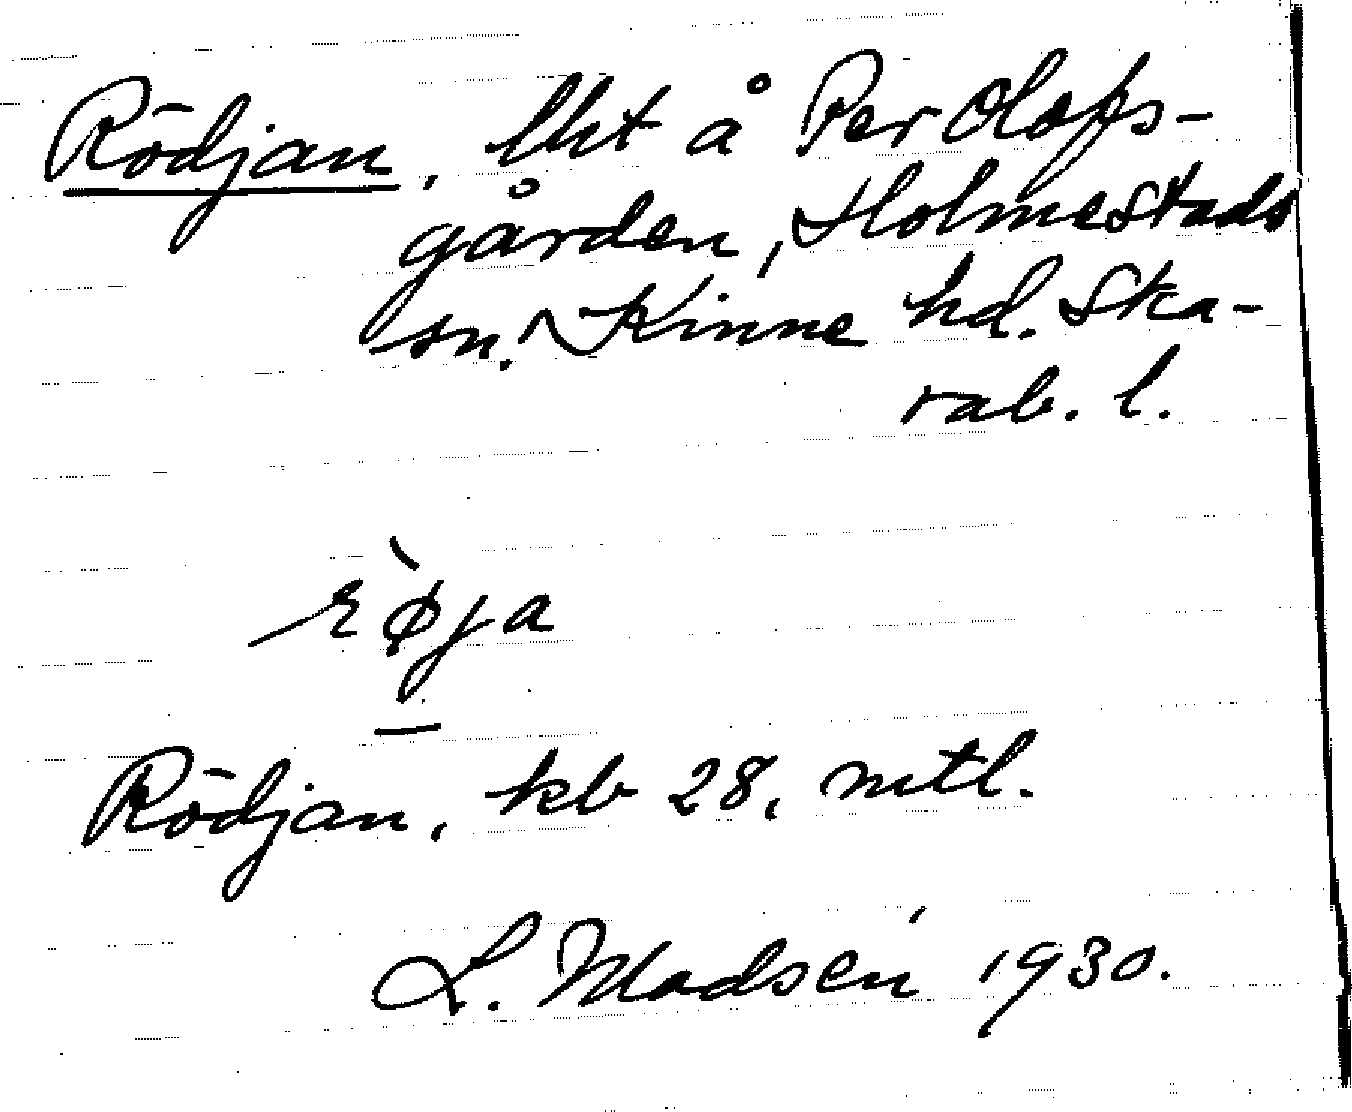 Rödjan, lht å Per Olofs-
gården, Holmestads
sn. Kinne hd. Ska-
rab. l.
rø̀ja
Rödjan, kb 28, mtl.
L. Madsén 1930.